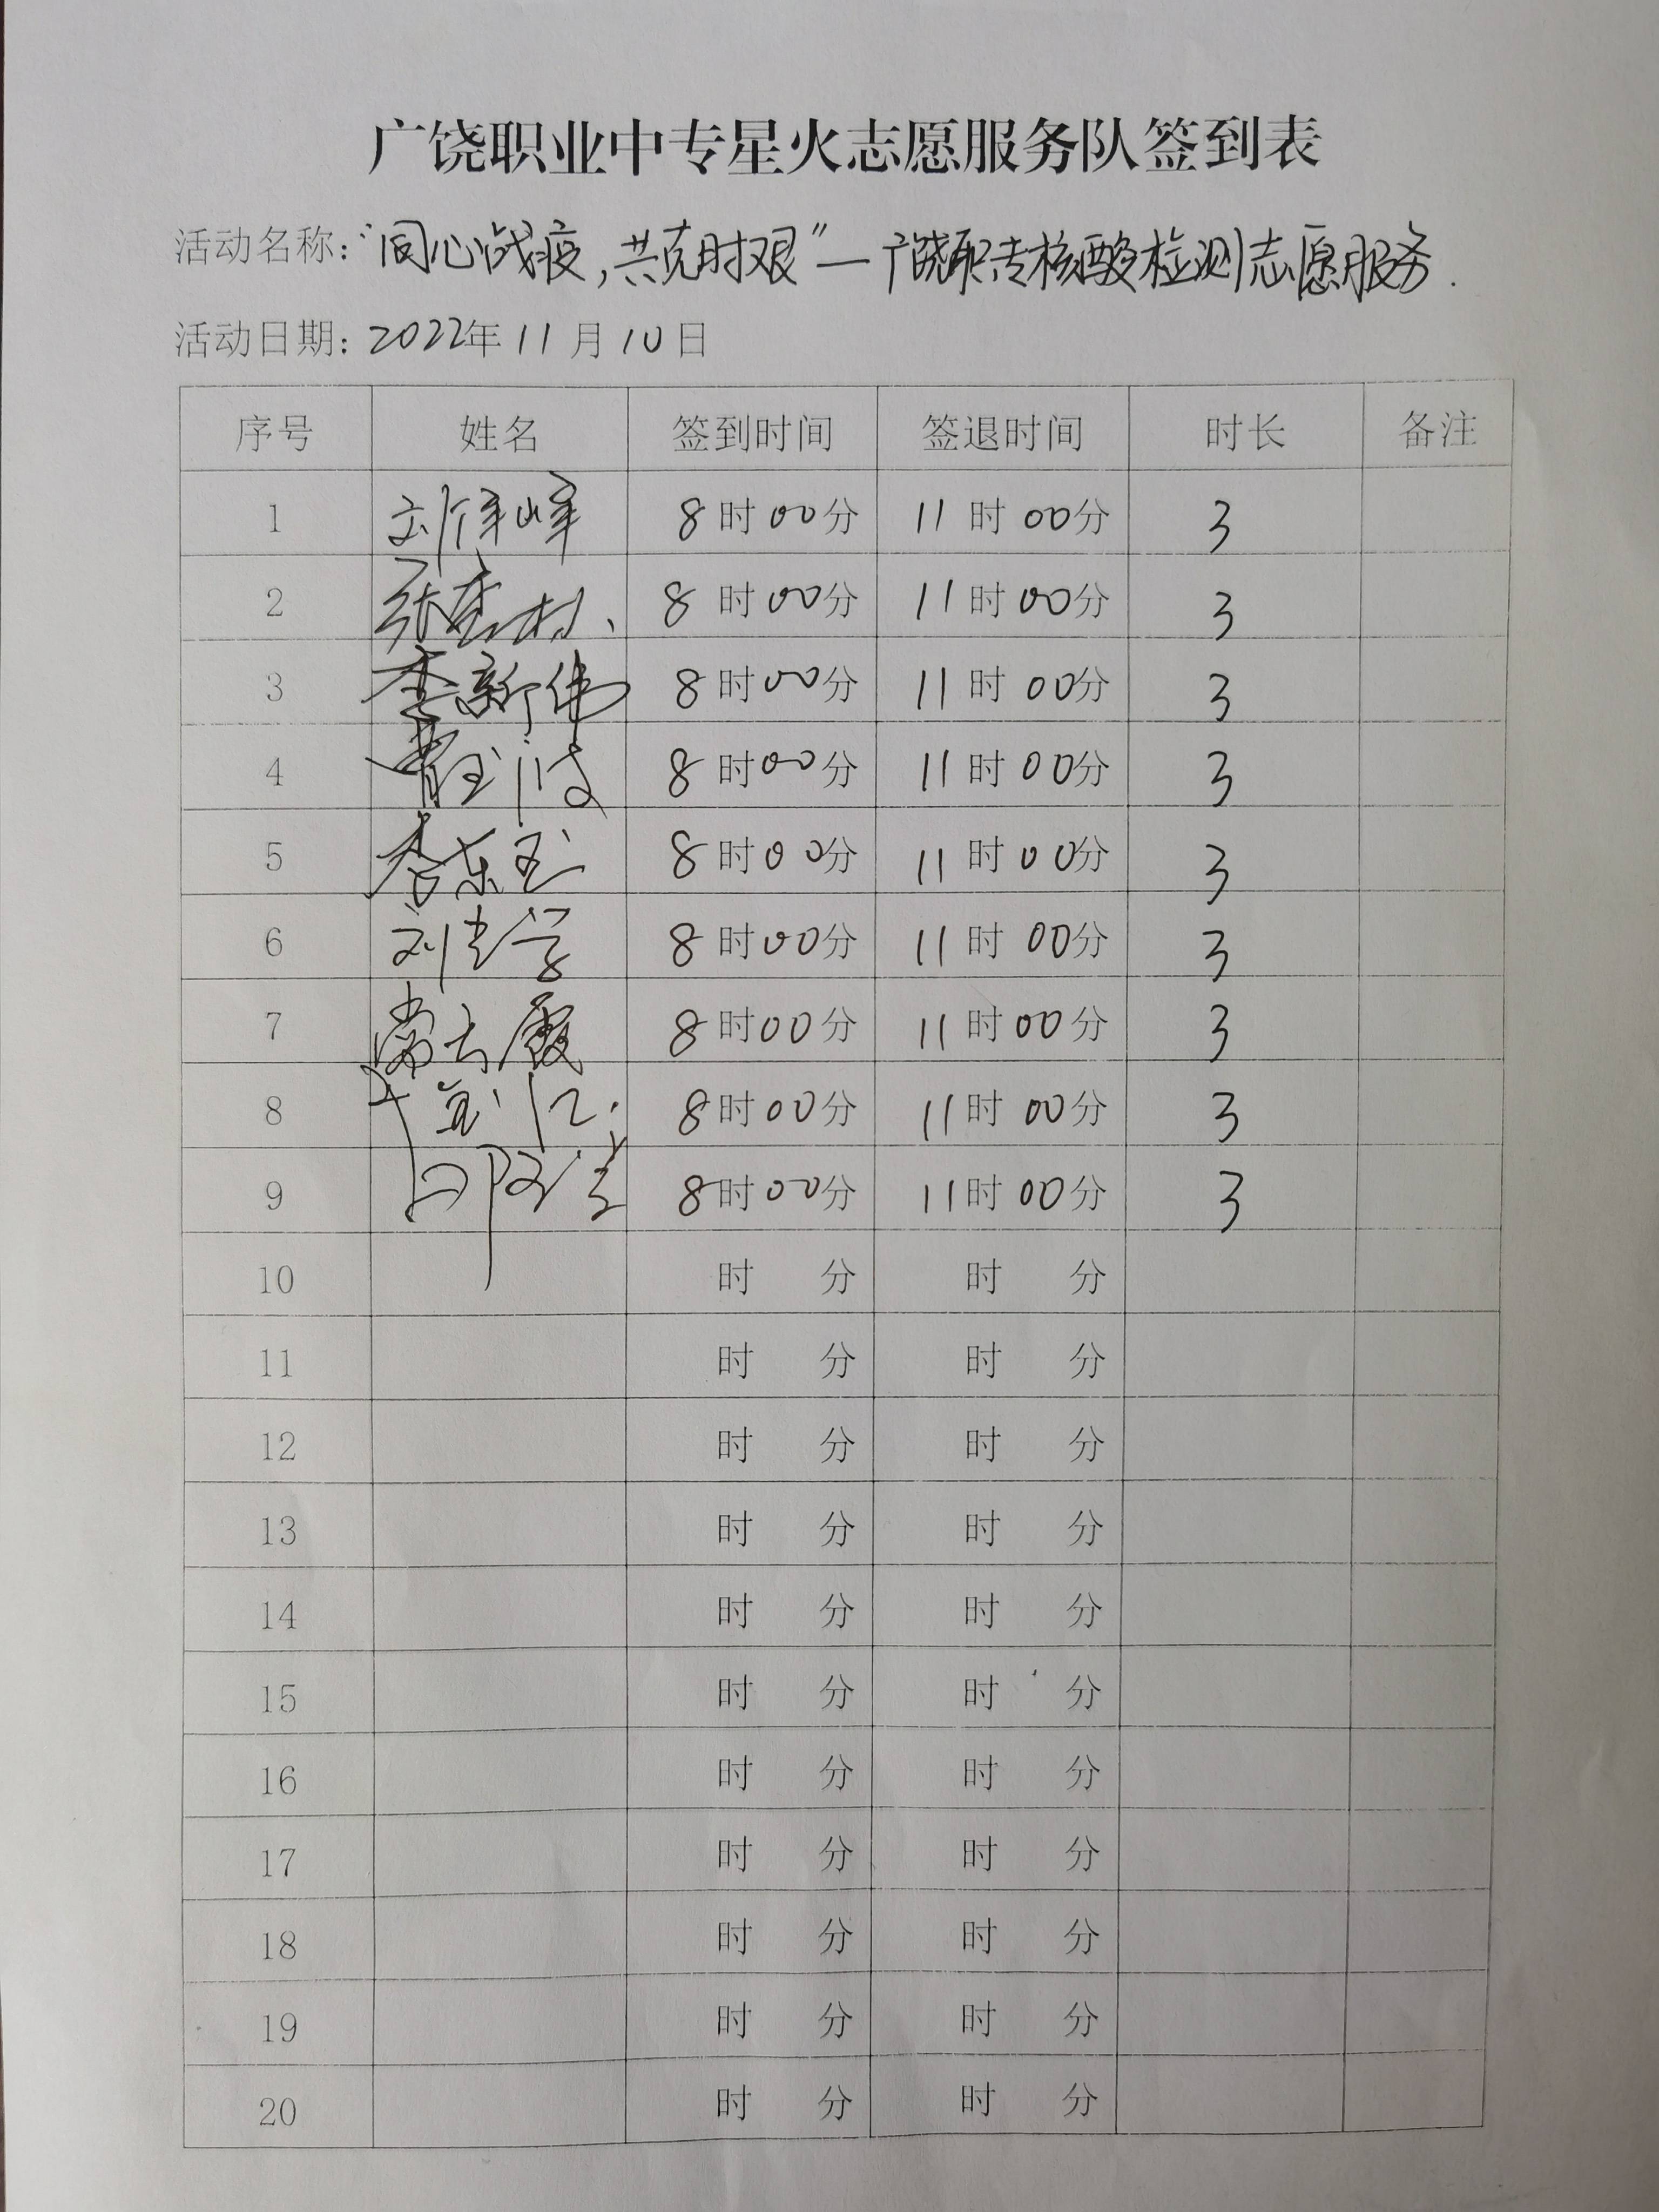 广饶职业中专星火志愿服务队签到表
活动名称:“同心战疫,共克时艰”—广饶职专核酸检测志愿服务.
活动日期: 2022年 11 月 10 日
序号 姓名 签到时间 签退时间 时长 备注
1 8 时 00 分 11 时 00 分 3
2 8 时 00 分 11 时 00 分 3
3 李新伟 8 时 00 分 11 时 00 分 3
4 8 时 00 分 11 时 00 分 3
5 李东玉 8 时 00 分 11 时 00 分 3
6 8 时 00 分 11 时 00 分 3
7 常云霞 8 时 00 分 11 时 00 分 3
8 8 时 00 分 11 时 00 分 3
9 8 时 00 分 11 时 00 分 3
10 时 分 时 分
11 时 分 时 分
12 时 分 时 分
13 时 分 时 分
14 时 分 时 分
15 时 分 时 分
16 时 分 时 分
17 时 分 时 分
18 时 分 时 分
19 时 分 时 分
20 时 分 时 分